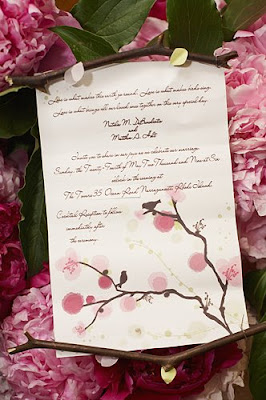 Love is what makes this world go round. Love is what makes music sing.
Love is what brings all our loved ones together on this very special day.
Natalie M. 
and
Matthew D. 
Invite you to share in our joy as we celebrate our marriage.
Sunday, the Twenty-Fourth of May Two Thousand and
o'clock in the evening at
The Towers 35 Ocean Road, Narragansett, Rhode Island.
Reception to follow
immediately after
the ceremony.